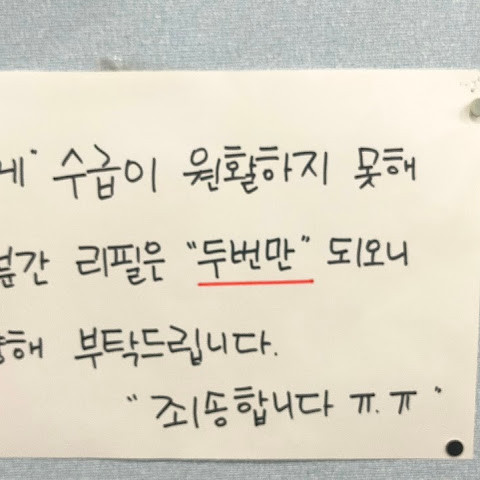 네" 수급이 원활하지 못해
간 리필은 "두번만" 되오니
해 부탁드립니다.
"죄송합니다 ㅠ.ㅠ"